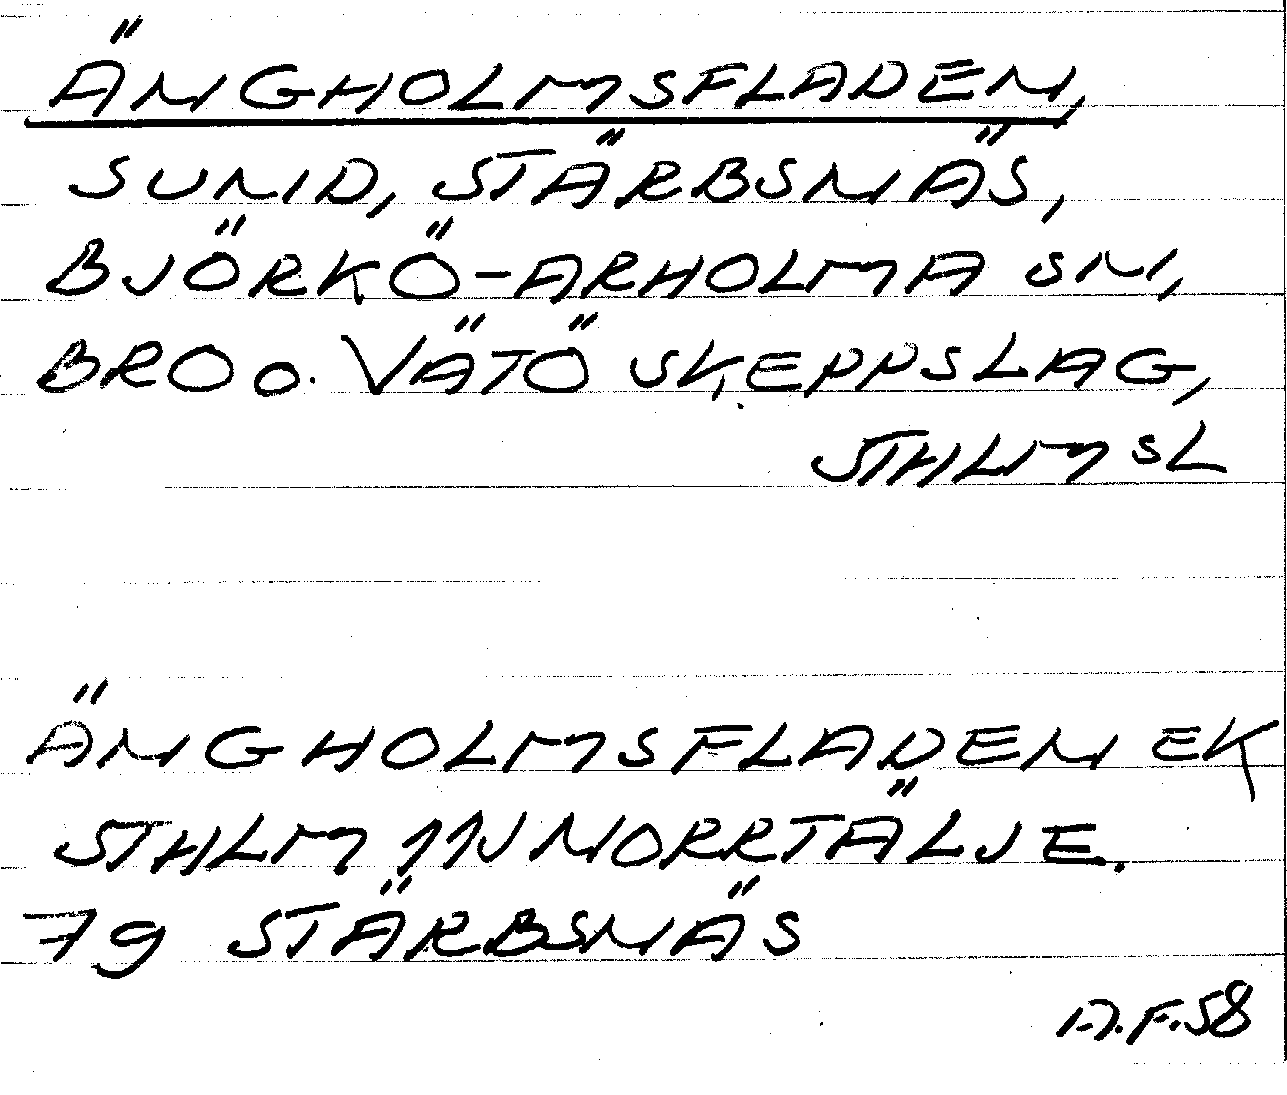 ÄNGHOLMSFLADEN,
SUND, STÄRBSNÄS,
BJÖRKÖ-ARHOLMA SN,
BRO O. VÄTÖ SKEPPSLAG,
STHLMSL
ÄNGHOLMSFLADEN EK
STHLM 11J NORRTÄLJE.
79 STÄRBSNÄS
A.F.58